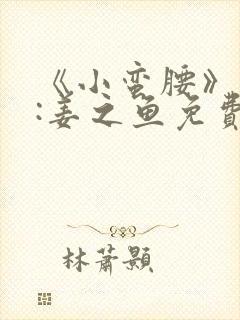 《小蛮腰》
:姜之鱼免費
林蕭顥